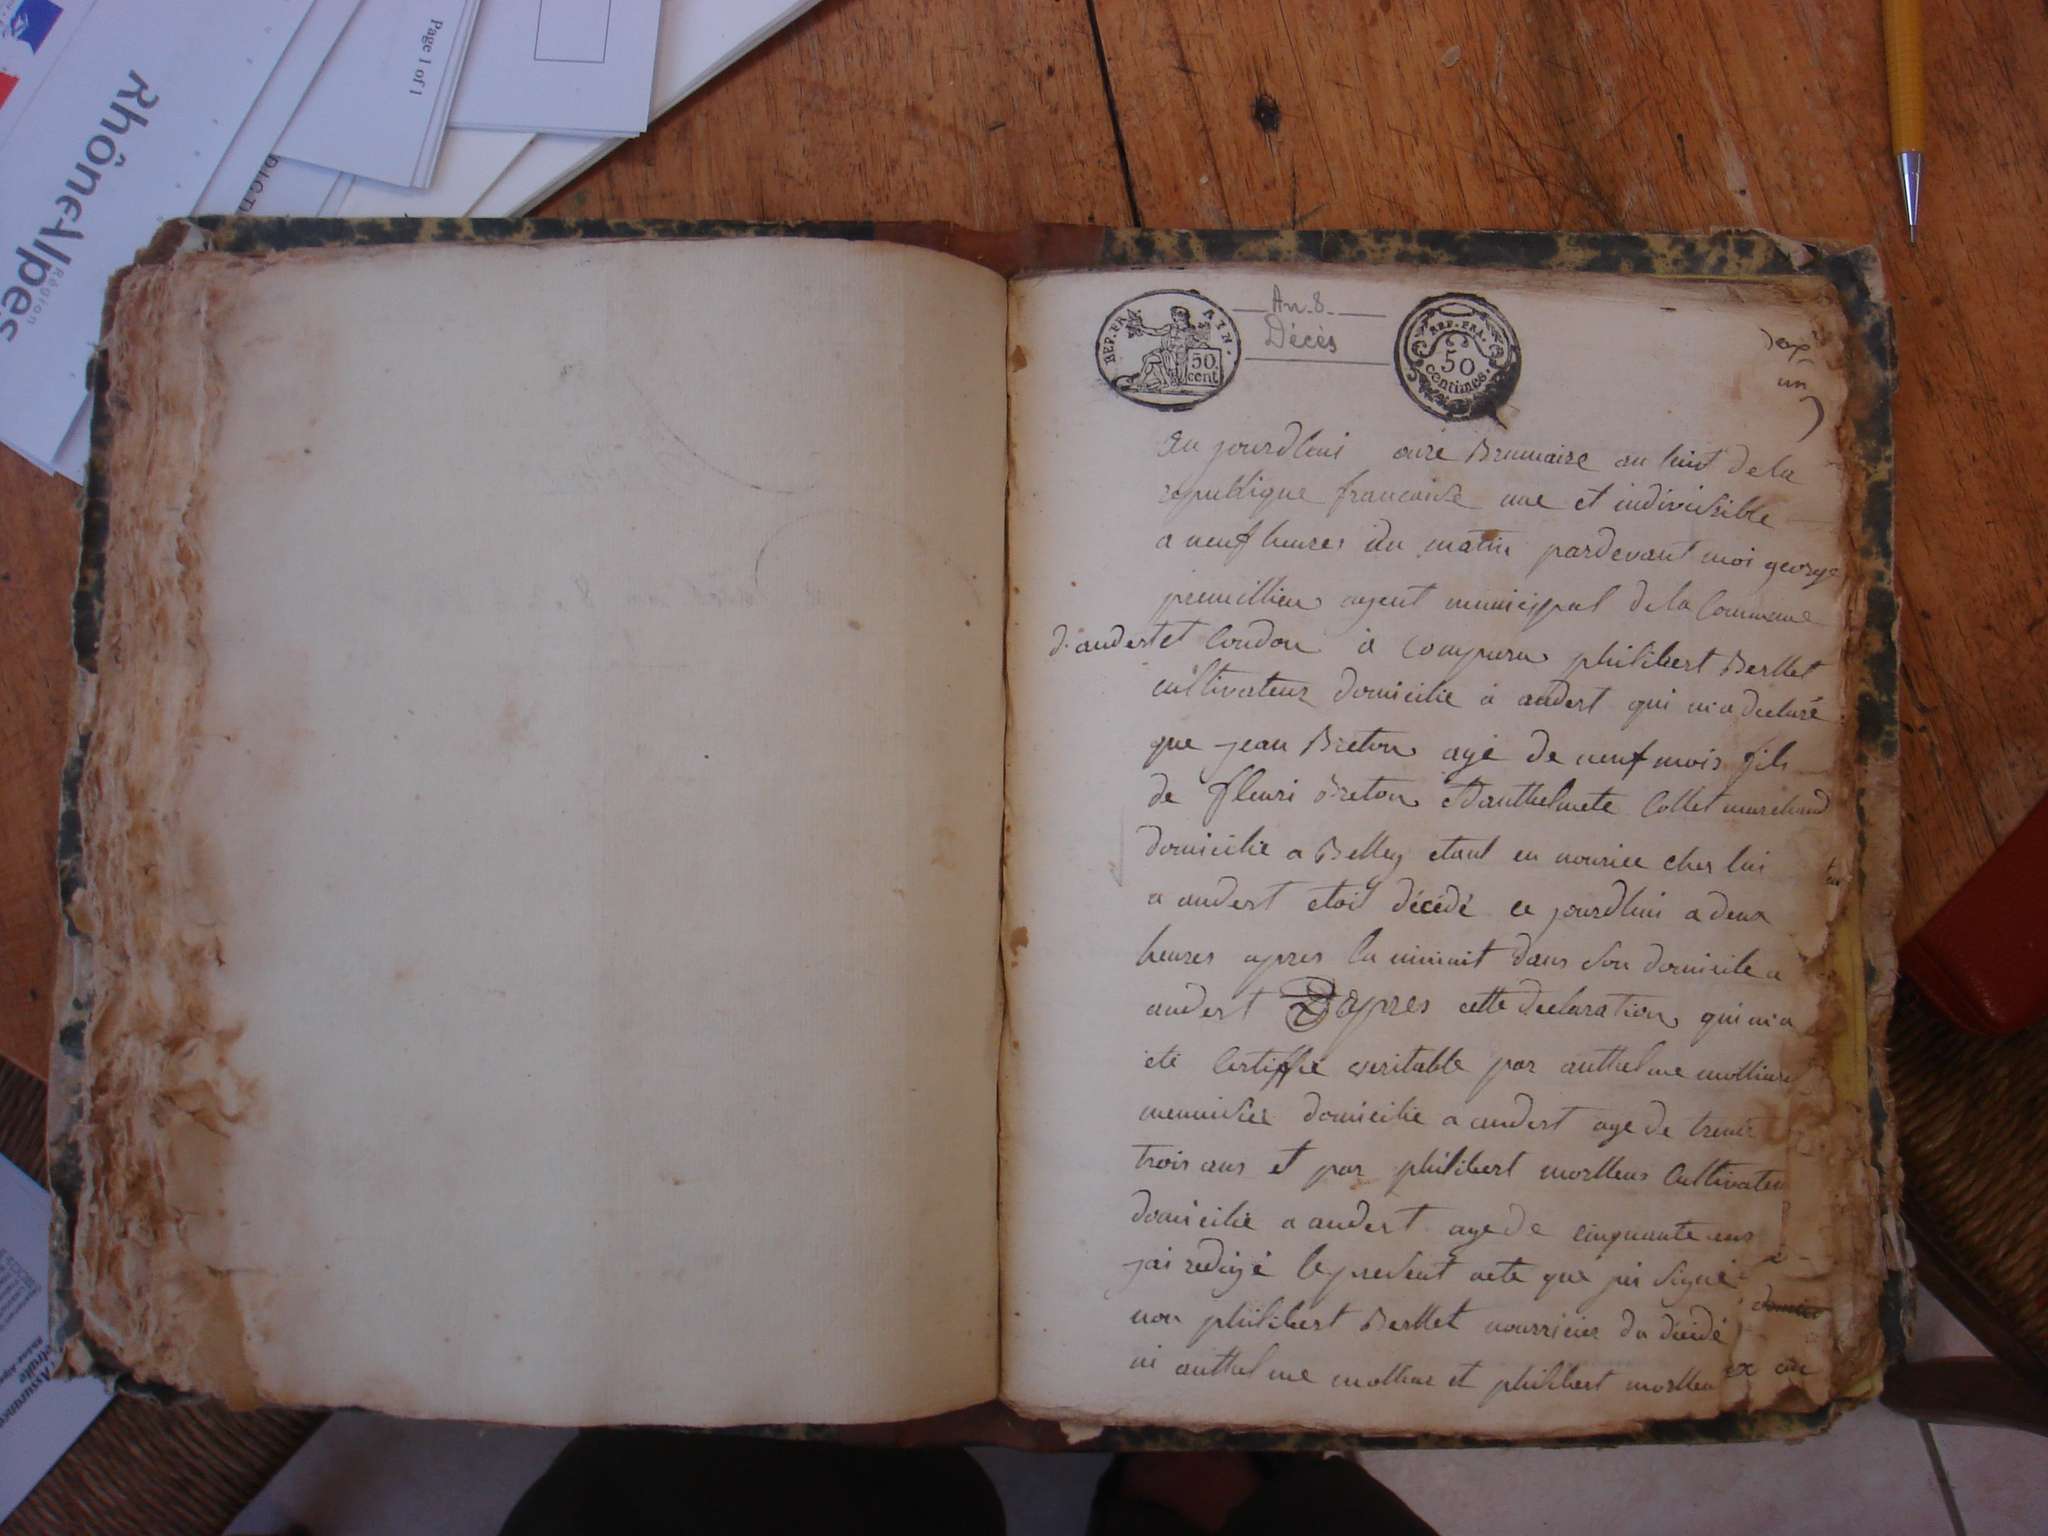 Rhône-Alpes
Région
Page 1 of 1
REP. FRA.
AIN.
50
cent.
An. 8.
Décès
REP. FRA.
50
centimes.
un
Au jourdhui onze Brumaire an huit dela
republique francaise une et indivisible
a neuf heures du matin pardevant moi george
premillieu agent municipal dela Commune
d'andert et Condon a comparu philibert Berllet
cultivateur domicilie a andert qui ma declaré
que jean Breton agé de neuf mois fils
de fleuri Breton et danthelmete Collet marchand
domicilie a Belley etant en nourice ches lui
a andert etoit décédé ce jourdhui a deux
heures apres la minuit dans son domicile a
andert Dapres cette declaration qui ma
eté Certiffié veritable par anthelme
menuisier domicilie a andert age de trente
trois ans et par philibert Cultivateu
domicilie a andert age de cinquante ans
jai redigé le present acte que jai signé
non philibert Berllet nourricier du décédé
ni anthelme et philibert